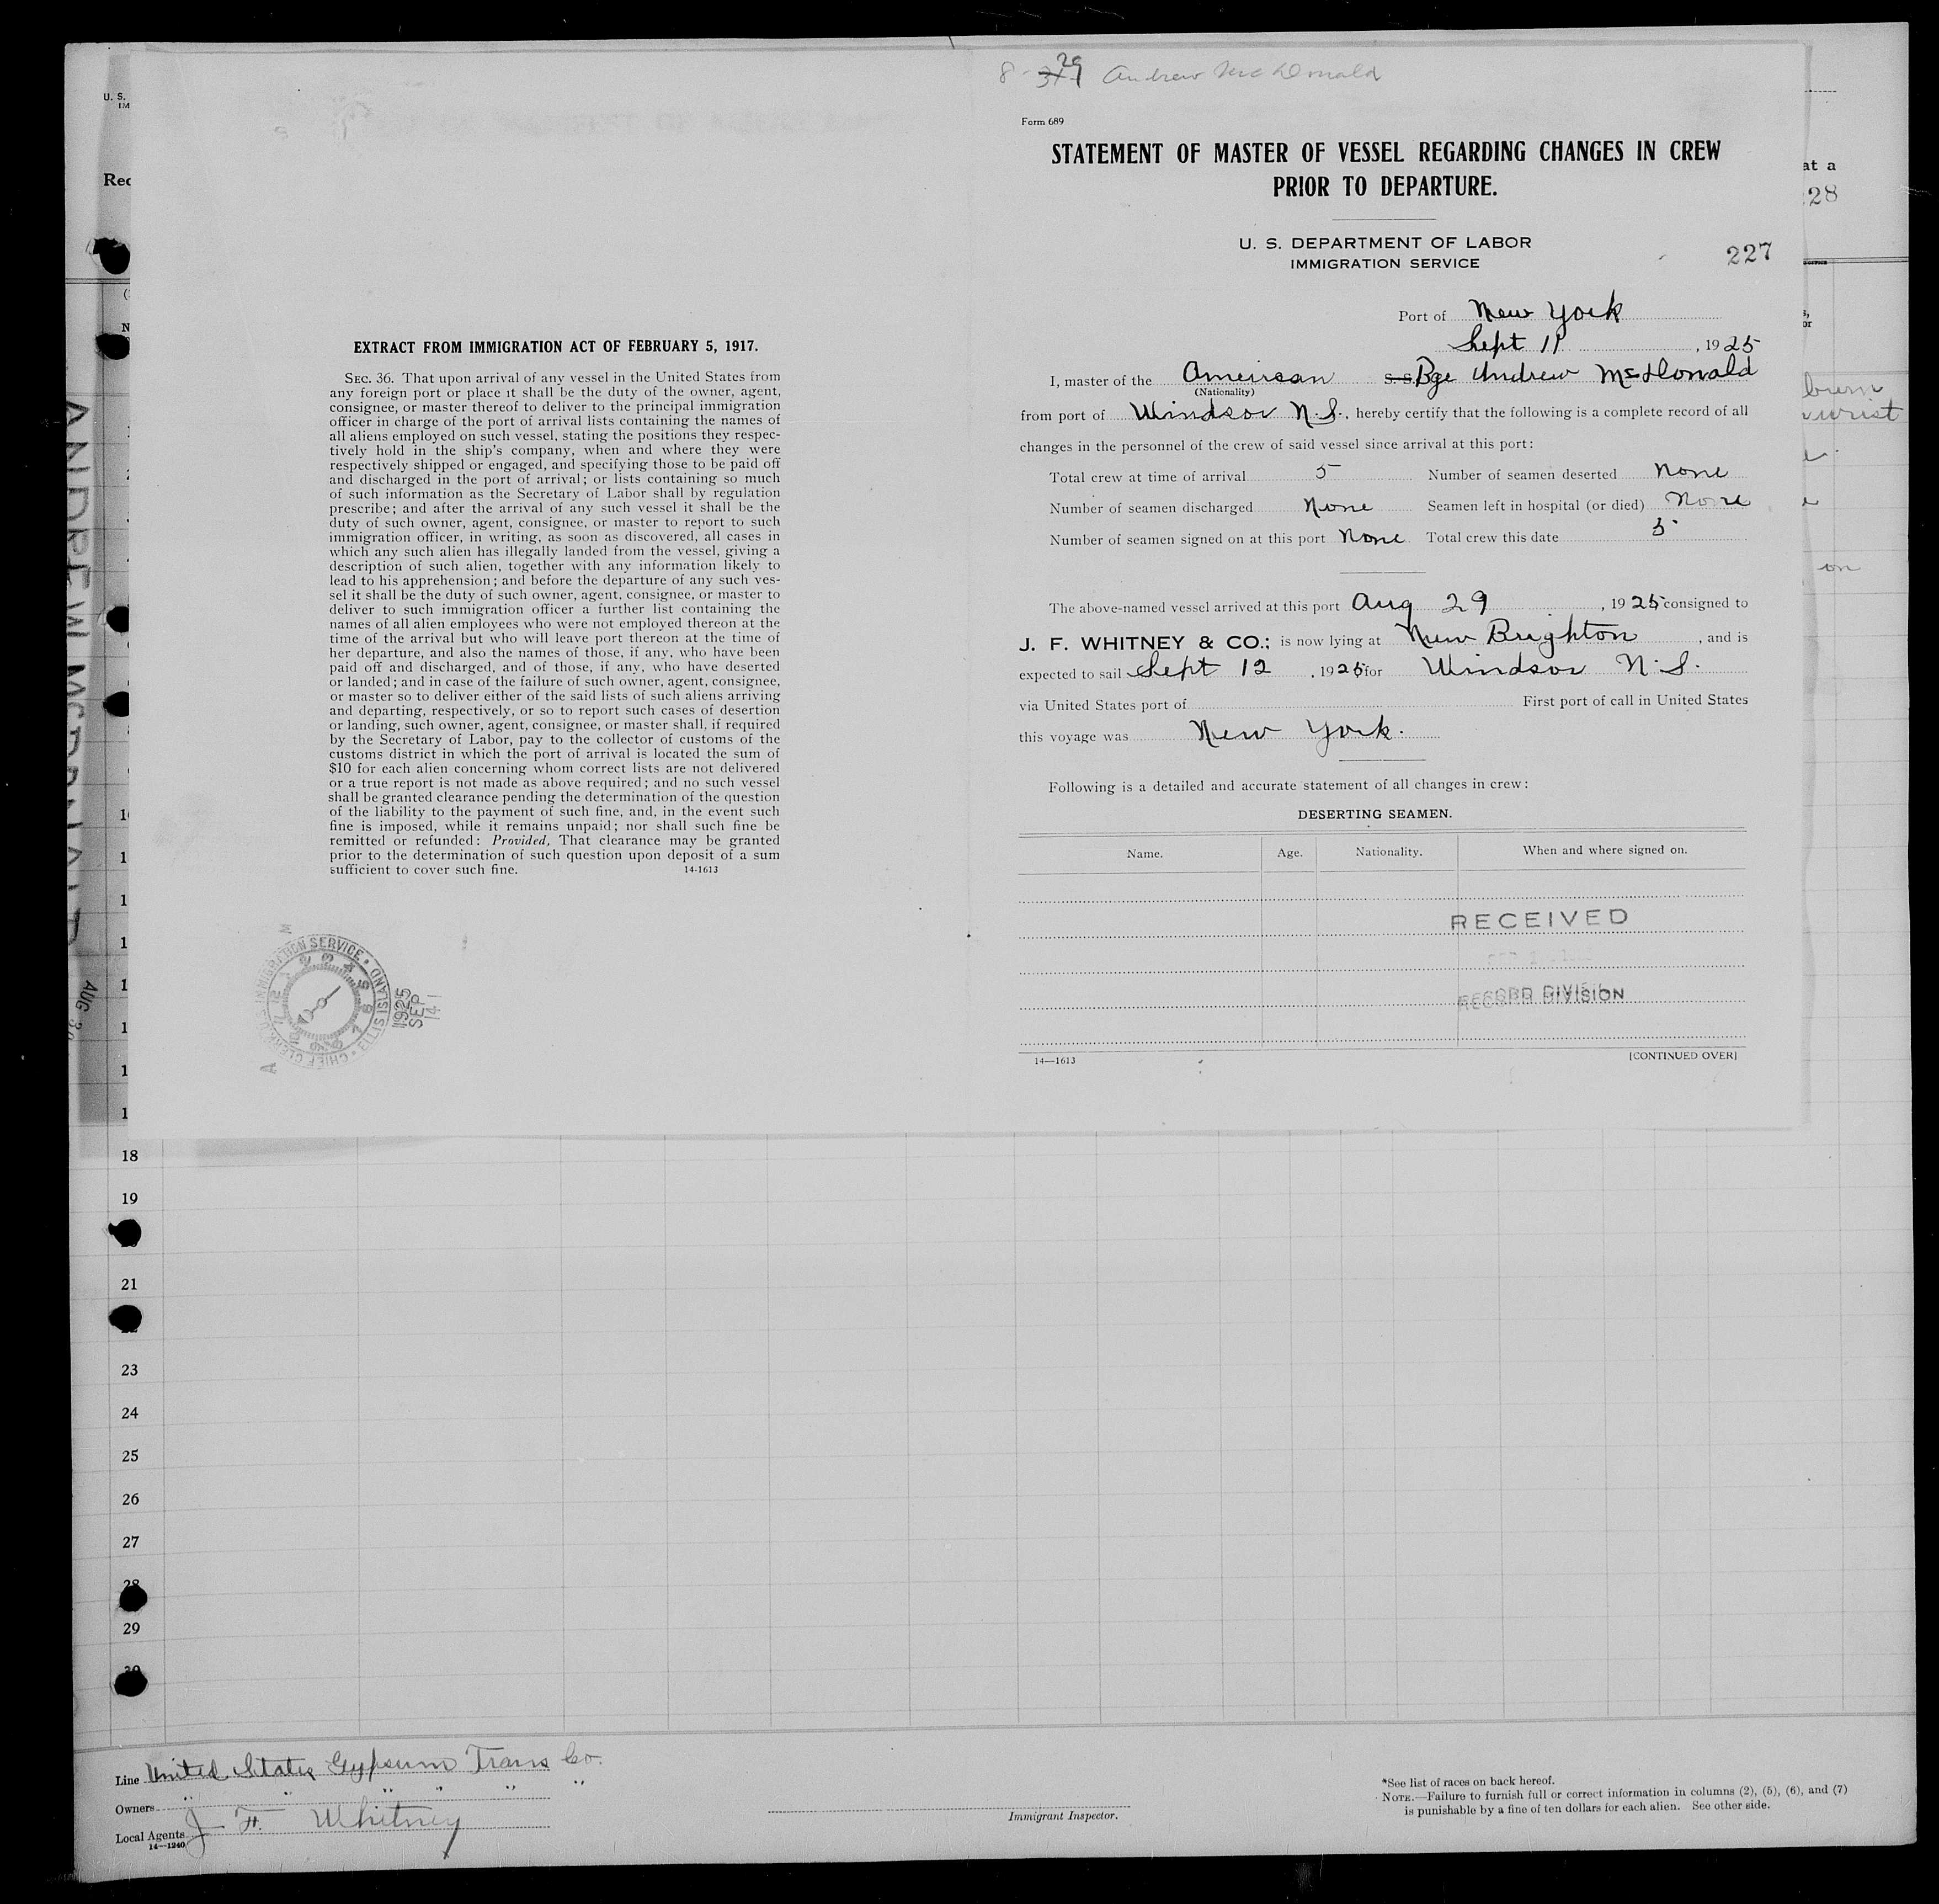 8-29 Andrew McDonald
Form 689
STATEMENT OF MASTER OF VESSEL REGARDING CHANGES IN CREW
PRIOR TO DEPARTURE.
U. S. DEPARTMENT OF LABOR
IMMIGRATION SERVICE
227
Port of New York
Sept 11, 1925
I, master of the American s.s. Bge Andrew McDonald
(Nationality)
from port of Windsor N.S., hereby certify that the following is a complete record of all
changes in the personnel of the crew of said vessel since arrival at this port:
Total crew at time of arrival 5 Number of seamen deserted None
Number of seamen discharged None Seamen left in hospital (or died) None
Number of seamen signed on at this port None Total crew this date 5
The above-named vessel arrived at this port Aug 29, 1925 consigned to
J. F. WHITNEY & CO.; is now lying at New Brighton, and is
expected to sail Sept 12, 1925 for Windsor N.S.
via United States port of First port of call in United States
this voyage was New York.
Following is a detailed and accurate statement of all changes in crew:
DESERTING SEAMEN.
Name. Age. Nationality. When and where signed on.
RECEIVED
RECORD DIVISION
14—1613 [CONTINUED OVER]
EXTRACT FROM IMMIGRATION ACT OF FEBRUARY 5, 1917.
SEC. 36. That upon arrival of any vessel in the United States from
any foreign port or place it shall be the duty of the owner, agent,
consignee, or master thereof to deliver to the principal immigration
officer in charge of the port of arrival lists containing the names of
all aliens employed on such vessel, stating the positions they respec-
tively hold in the ship's company, when and where they were
respectively shipped or engaged, and specifying those to be paid off
and discharged in the port of arrival; or lists containing so much
of such information as the Secretary of Labor shall by regulation
prescribe; and after the arrival of any such vessel it shall be the
duty of such owner, agent, consignee, or master to report to such
immigration officer, in writing, as soon as discovered, all cases in
which any such alien has illegally landed from the vessel, giving a
description of such alien, together with any information likely to
lead to his apprehension; and before the departure of any such ves-
sel it shall be the duty of such owner, agent, consignee, or master to
deliver to such immigration officer a further list containing the
names of all alien employees who were not employed thereon at the
time of the arrival but who will leave port thereon at the time of
her departure, and also the names of those, if any, who have been
paid off and discharged, and of those, if any, who have deserted
or landed; and in case of the failure of such owner, agent, consignee,
or master so to deliver either of the said lists of such aliens arriving
and departing, respectively, or so to report such cases of desertion
or landing, such owner, agent, consignee, or master shall, if required
by the Secretary of Labor, pay to the collector of customs of the
customs district in which the port of arrival is located the sum of
$10 for each alien concerning whom correct lists are not delivered
or a true report is not made as above required; and no such vessel
shall be granted clearance pending the determination of the question
of the liability to the payment of such fine, and, in the event such
fine is imposed, while it remains unpaid; nor shall such fine be
remitted or refunded: Provided, That clearance may be granted
prior to the determination of such question upon deposit of a sum
sufficient to cover such fine.
14-1613
CHIEF CLERK U.S. IMMIGRATION SERVICE • ELLIS ISLAND •
1925
SEP
14
U. S.
Rec
at a
228
ANDREW McDONALD
AUG 30
18
19
21
23
24
25
26
27
28
29
30
Line United States Gypsum Trans Co.
Owners " " " " "
Local Agents J F. Whitney
14—1240
Immigrant Inspector.
*See list of races on back hereof.
NOTE.—Failure to furnish full or correct information in columns (2), (5), (6), and (7)
is punishable by a fine of ten dollars for each alien. See other side.